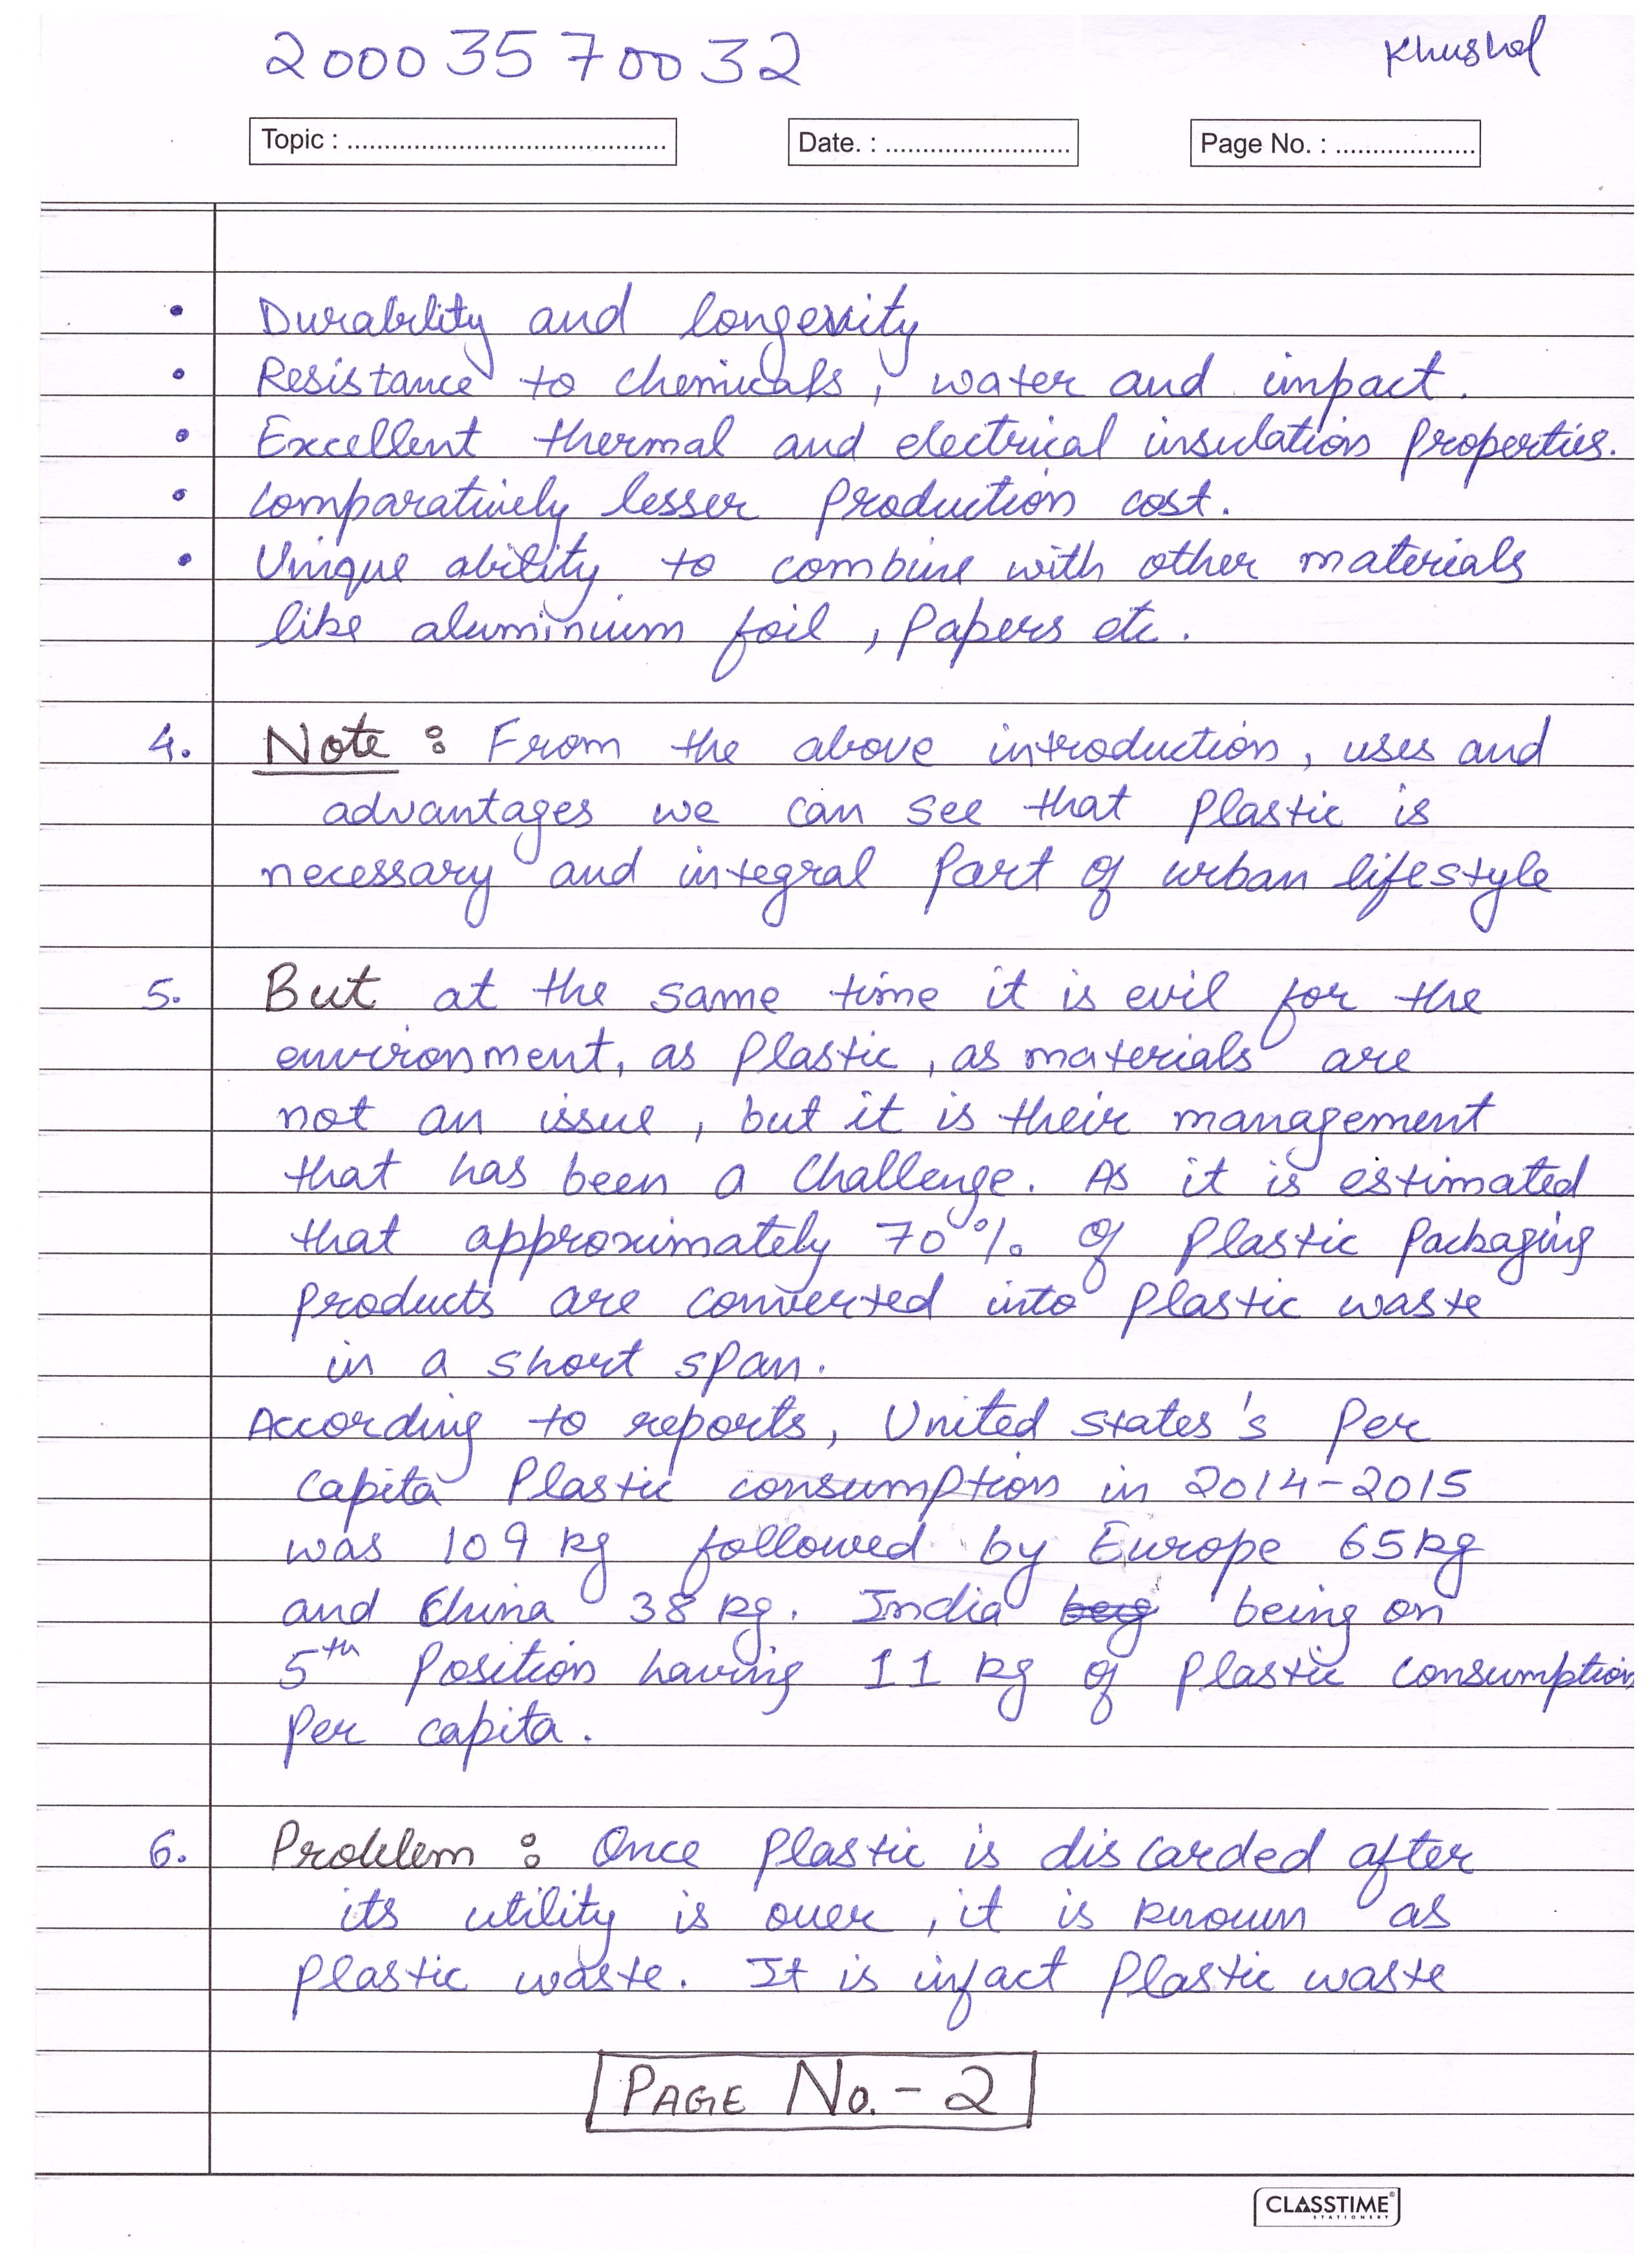 20003570032
Khushal
Topic : ............................................
Date. : .........................
Page No. : ...................
• Durability and longevity
• Resistance to chemicals, water and impact.
• Excellent thermal and electrical insulation properties.
• Comparatively lesser production cost.
• Unique ability to combine with other materials
like aluminium foil, Papers etc.
4. Note : From the above introduction, uses and
advantages we can see that plastic is
necessary and integral part of urban lifestyle
5. But at the same time it is evil for the
environment, as plastic, as materials are
not an issue, but it is their management
that has been a challenge. As it is estimated
that approximately 70% of plastic packaging
products are converted into plastic waste
in a short span.
According to reports, United states's per
capita plastic consumption in 2014-2015
was 109 kg followed by Europe 65kg
and China 38 kg. India being on
5th position having 11 kg of plastic consumption
per capita.
6. Problem : Once plastic is discarded after
its utility is over, it is known as
plastic waste. It is infact plastic waste
PAGE No. - 2
CLASSTIME
STATIONERY